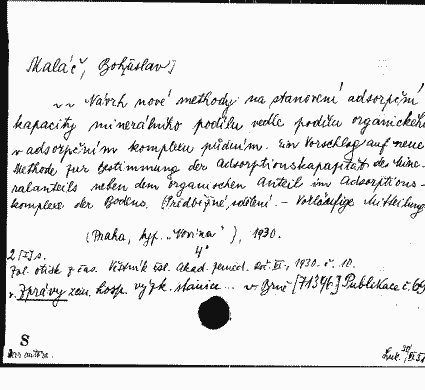 Maláč, Bohuslav
~~ Návrh nové methody na stanovení adsorpční
kapacity minerálního podílu vedle podílu organického
v adsorpčním komplexu půdním. Ein Vorschlag auf neue
Methode zur Bestimmung der Adsorptionskapazität des Mine-
ralanteils neben dem organischen Anteil im Adsorptions-
komplexe der Bodens. (Předběžné sdělení. - Vorläufige Mitteilung
(Praha, typ. "Novina"), 1930.
4°
2 [I] s.
Zvl. otisk z čas. Věstník čsl. Akad. zeměd. roč. VI., 1930. č. 10.
v. Zprávy zem. hosp. výzk. stanice... v Brně [71346] Publikace č. 69
S
Dar autora.